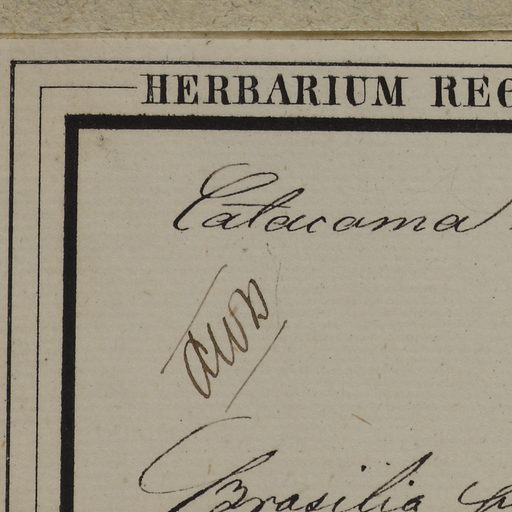 HERBARIUM REG
Catacoma
Brasilia